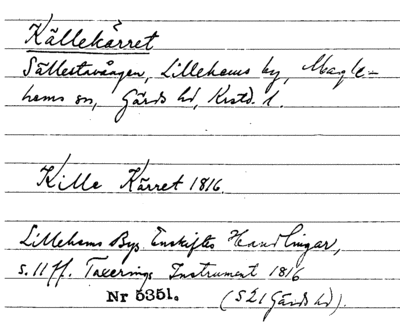 Källekärret
Sällestavången, Lillehems by, Magle-
hems sn, Gärds hd, Krstd. l.
Kille Kärret 1816.
Lillehems Bys Enskiftes Handlingar,
s. 11 ff. Taxerings Instrument 1816
Nr 5351. (S 21 Gärds hd).